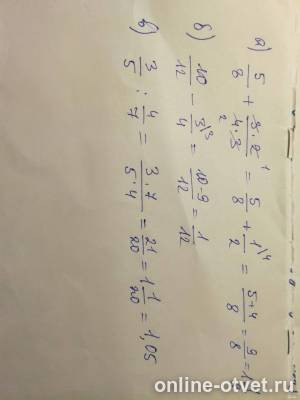 а) 5/8 + 3·2/4·3 = 5/8 + 1/2 \4 = 5+4/8 = 9/8 = 1
б) 10/12 - 3/4 \3 = 10-9/12 = 1/12
в) 3/5 : 4/7 = 3·7/5·4 = 21/20 = 1 1/20 = 1,05
online-otvet.ru